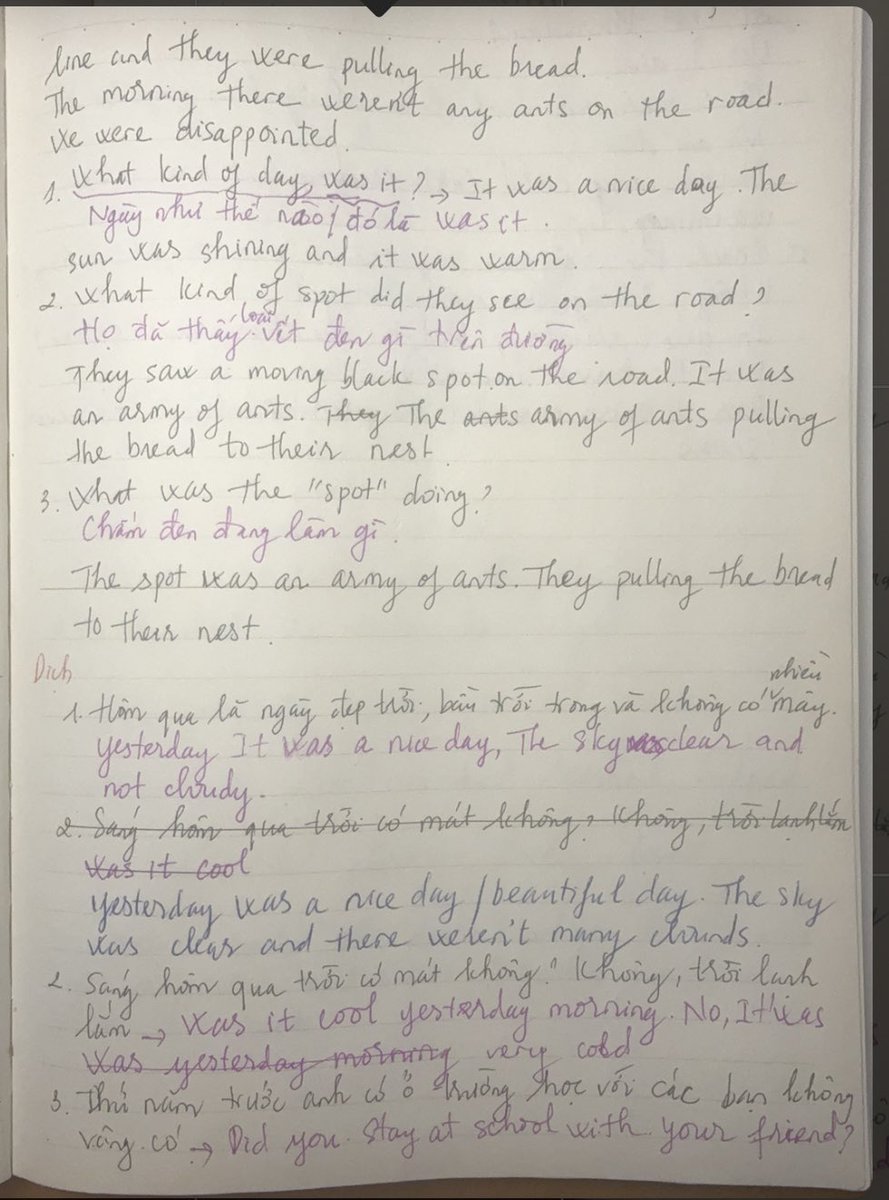 line and they were pulling the bread.
The morning there weren't any ants on the road.
We were disappointed.
1. What kind of day, was it? → It was a nice day. The
Ngày như thế nào / đó là was it.
sun was shining and it was warm.
2. What kind of spot did they see on the road?
Họ đã thấy loại vết đen gì trên đường
They saw a moving black spot on the road. It was
an army of ants. They The ants army of ants pulling
the bread to their nest
3. What was the "spot" doing?
Chấm đen đang làm gì.
The spot was an army of ants. They pulling the bread
to their nest.
Dịch
1. Hôm qua là ngày đẹp trời, bầu trời trong và không có nhiều mây.
yesterday It was a nice day, The sky was clear and
not cloudy.
2. Sáng hôm qua trời có mát không? Không, trời lạnh lắm
Was it cool
yesterday was a nice day / beautiful day. The sky
was clear and there weren't many clounds.
2. Sáng hôm qua trời có mát không? Không, trời lạnh
lắm → Was it cool yesterday morning. No, It was
Was yesterday morning very cold
3. Thứ năm trước anh có ở trường học với các bạn không
vâng có → Did you stay at school with your friend?